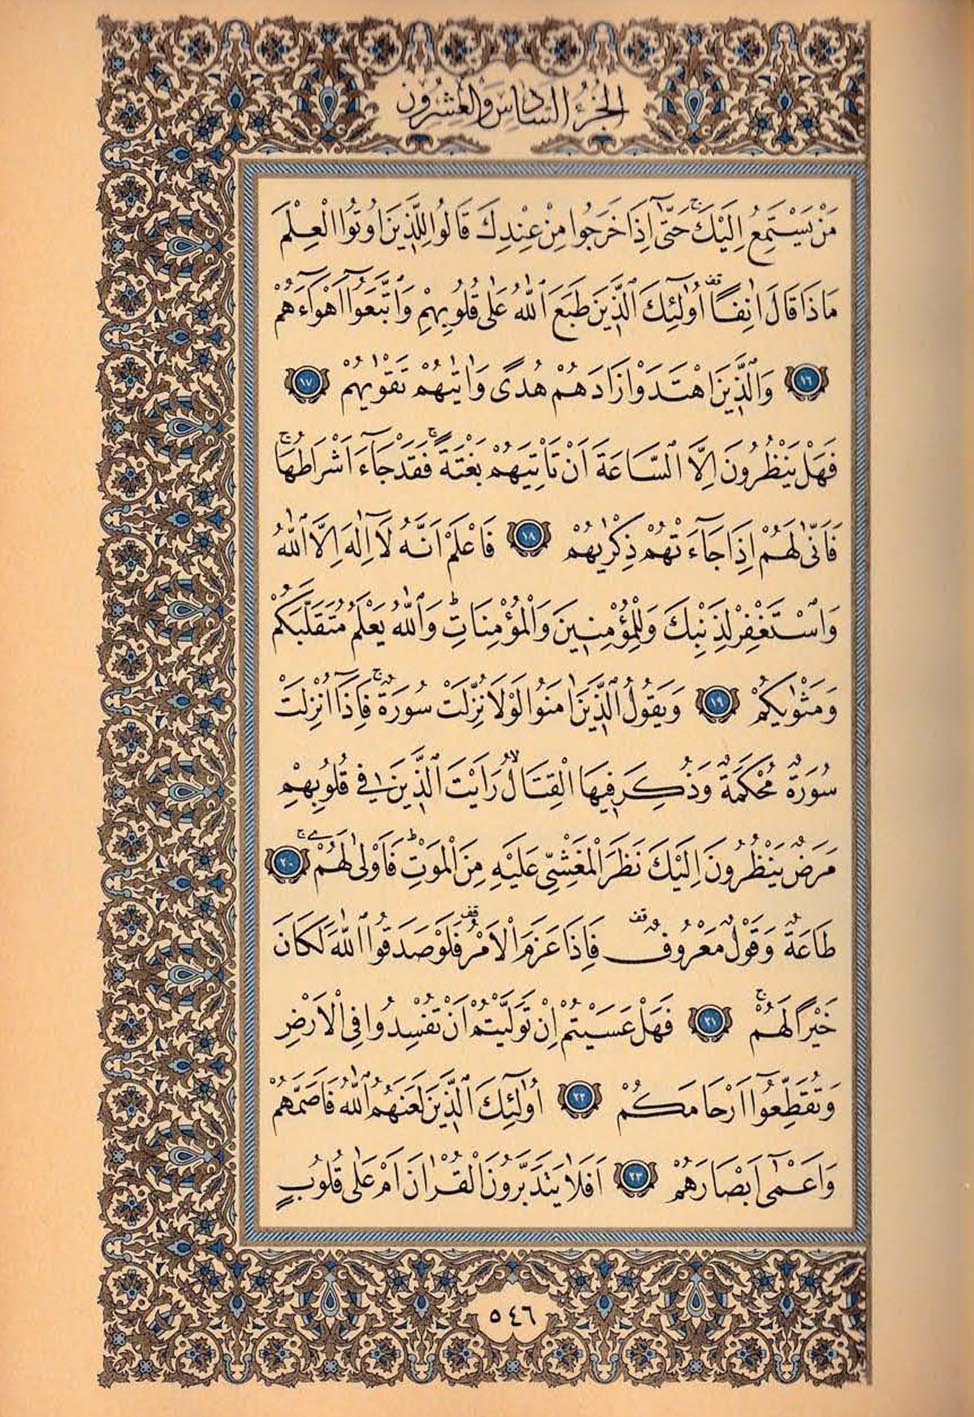 الجزء السادس والعشرون
مَنْ يَسْتَمِعُ اِلَيْكَۚ حَتّٰٓى اِذَا خَرَجُوا مِنْ عِنْدِكَ قَالُوا لِلَّذ۪ينَ اُو۫تُوا الْعِلْمَ
مَاذَا قَالَ اٰنِفًا۠ اُو۬لٰٓئِكَ الَّذ۪ينَ طَبَعَ اللّٰهُ عَلٰى قُلُوبِهِمْ وَاتَّبَعُٓوا اَهْوَٓاءَهُمْ
﴿١٦﴾ وَالَّذ۪ينَ اهْتَدَوْا زَادَهُمْ هُدًى وَاٰتٰيهُمْ تَقْوٰيهُمْ ﴿١٧﴾
فَهَلْ يَنْظُرُونَ اِلَّا السَّاعَةَ اَنْ تَأْتِيَهُمْ بَغْتَةًۚ فَقَدْ جَٓاءَ اَشْرَاطُهَاۚ
فَاَنّٰى لَهُمْ اِذَا جَٓاءَتْهُمْ ذِكْرٰيهُمْ ﴿١٨﴾ فَاعْلَمْ اَنَّهُ لَٓا اِلٰهَ اِلَّا اللّٰهُ
وَاسْتَغْفِرْ لِذَنْبِكَ وَلِلْمُؤْمِن۪ينَ وَالْمُؤْمِنَاتِۜ وَاللّٰهُ يَعْلَمُ مُتَقَلَّبَكُمْ
وَمَثْوٰيكُمْ ﴿١٩﴾ وَيَقُولُ الَّذ۪ينَ اٰمَنُوا لَوْلَا نُزِّلَتْ سُورَةٌۚ فَاِذَٓا اُنْزِلَتْ
سُورَةٌ مُحْكَمَةٌ وَذُكِرَ ف۪يهَا الْقِتَالُۙ رَاَيْتَ الَّذ۪ينَ ف۪ي قُلُوبِهِمْ
مَرَضٌ يَنْظُرُونَ اِلَيْكَ نَظَرَ الْمَغْشِيِّ عَلَيْهِ مِنَ الْمَوْتِۜ فَاَوْلٰى لَهُمْۚ ﴿٢٠﴾
طَاعَةٌ وَقَوْلٌ مَعْرُوفٌ۠ فَاِذَا عَزَمَ الْاَمْرُ۠ فَلَوْ صَدَقُوا اللّٰهَ لَكَانَ
خَيْرًا لَهُمْۚ ﴿٢١﴾ فَهَلْ عَسَيْتُمْ اِنْ تَوَلَّيْتُمْ اَنْ تُفْسِدُوا فِي الْاَرْضِ
وَتُقَطِّعُٓوا اَرْحَامَكُمْ ﴿٢٢﴾ اُو۬لٰٓئِكَ الَّذ۪ينَ لَعَنَهُمُ اللّٰهُ فَاَصَمَّهُمْ
وَاَعْمٰٓى اَبْصَارَهُمْ ﴿٢٣﴾ اَفَلَا يَتَدَبَّرُونَ الْقُرْاٰنَ اَمْ عَلٰى قُلُوبٍ
٥٤٦